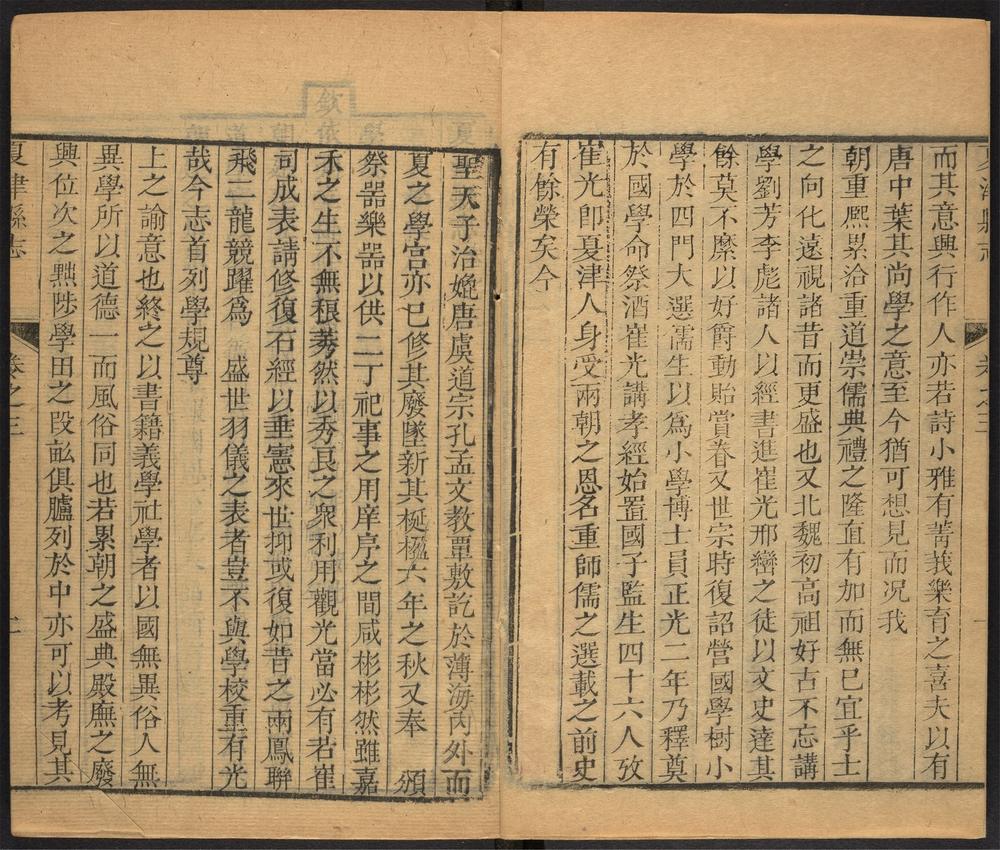 夏津縣志 卷之三
而其意興行作人亦若詩小雅有菁莪樂育之喜夫以有
唐中葉其尚學之意至今猶可想見而况我
朝重熙累洽重道崇儒典禮之隆直有加而無已宜乎士
之向化遠視諸昔而更盛也又北魏初高祖好古不忘講
學劉芳李彪諸人以經書進崔光邢巒之徒以文史達其
餘莫不縻以好爵動貽賞眷又世宗時復詔營國學樹小
學於四門大選儒生以爲小學博士員正光二年乃釋奠
於國學命祭酒崔光講孝經始置國子監生四十六人攷
崔光卽夏津人身受兩朝之恩名重師儒之選載之前史
有餘榮矣今
聖天子治媲唐虞道宗孔孟文教覃敷訖於薄海內外而
夏之學宮亦已修其廢墜新其榱楹六年之秋又奉 頒
祭器樂器以供二丁祀事之用庠序之間咸彬彬然雖嘉
禾之生不無稂莠然以秀良之衆利用觀光當必有若崔
司成表請修復石經以垂憲來世抑或復如昔之兩鳳聯
飛二龍競躍爲 盛世羽儀之表者豈不與學校重有光
哉今志首列學規尊
上之諭意也終之以書籍義學社學者以國無異俗人無
異學所以道德一而風俗同也若累朝之盛典殿廡之廢
興位次之黜陟學田之段畝俱臚列於中亦可以考見其
夏津縣志 卷之三 二
欽